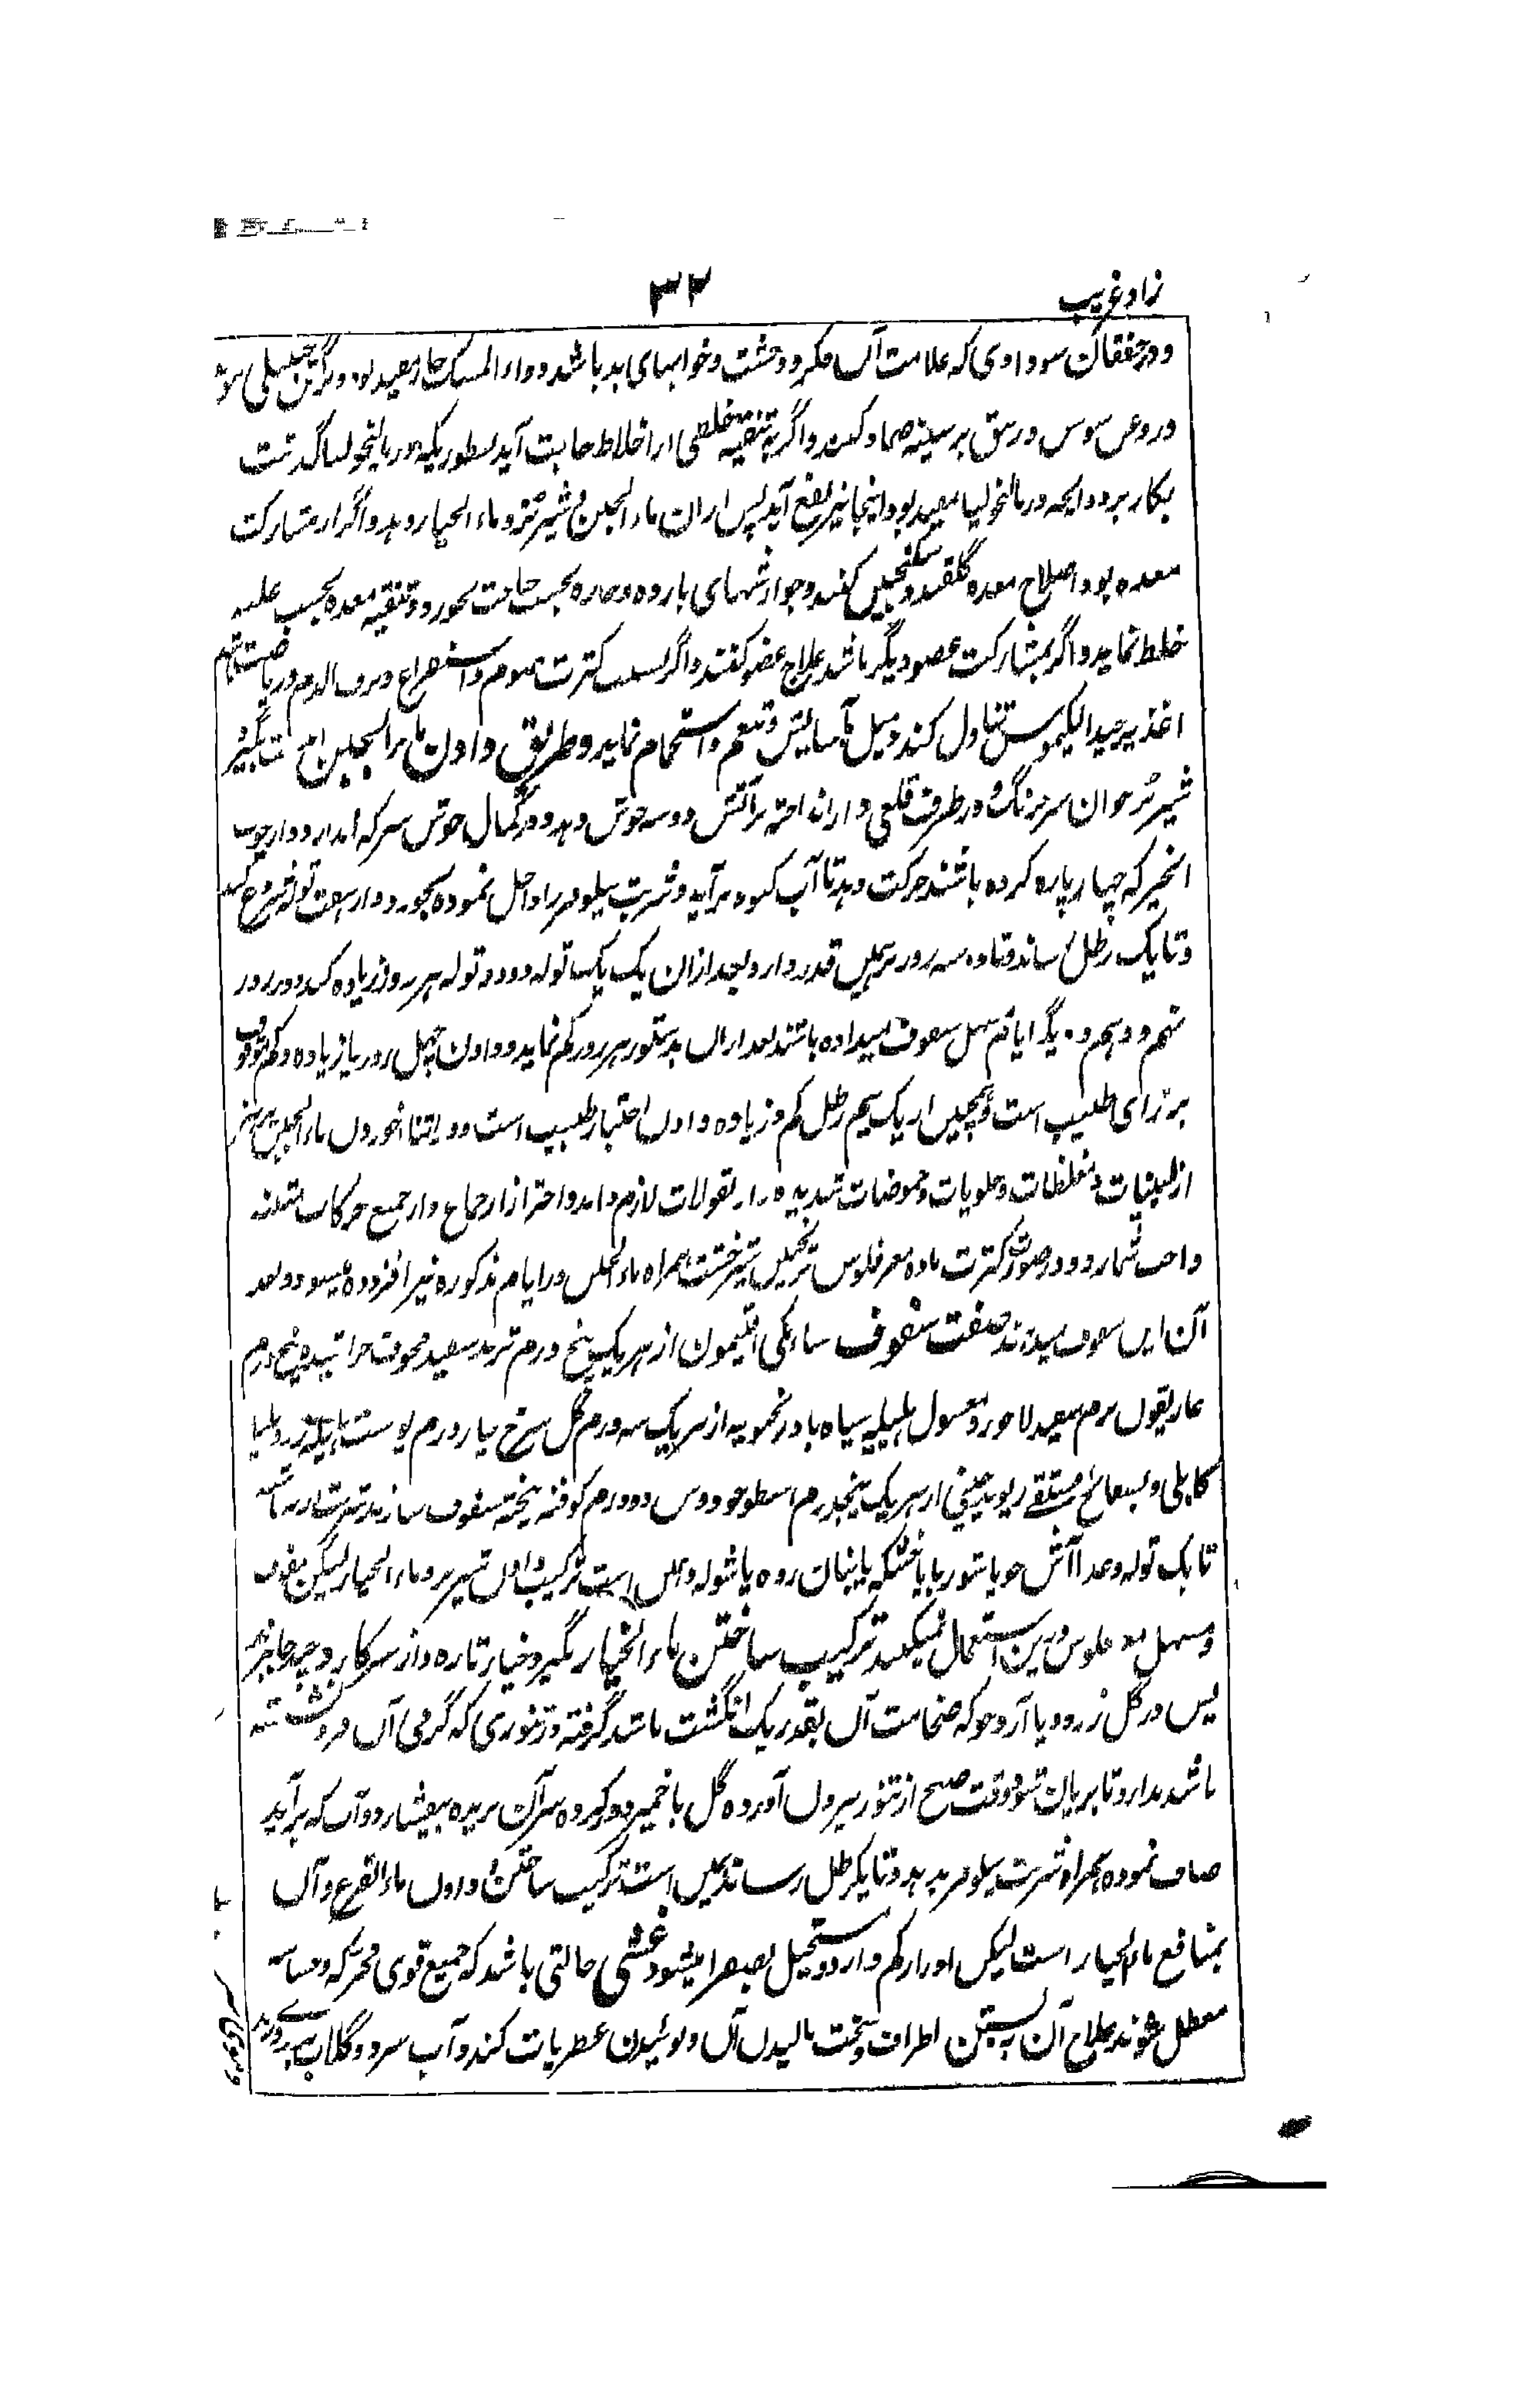 زاد غریب
۳۲
و در خفقان سوداوی که علامت آن فکر و وحشت و خوابهای بد باشد دواء المسک حار مفید بود
و روغن سوسن و زنبق بر سینه ضماد کنند و اگر به تنقیه خلطی از اخلاط حاجت آید بطوریکه در مالیخولیا گذشت
بکار برد و آنچه در مالیخولیا مفید بود اینجا نیز بنفع آید پس ازان ماء الجبن و شیر بز و ماء الخیار بدهد و اگر از مشارکت
معده بود اصلاح معده گلقند و سکنجبین کنند و جوارشهای بارده و حاره بحسب حاجت بخورد و تنقیه معده بحسب غلبه
خلط نماید و اگر بمشارکت عضو دیگر باشد علاج عضو کنند و اگر بسبب کثرت صوم و استفراغ و نزف الدم و ریاضت باشد
اغذیه جید الکیموس تناول کند و میل بآسایش و تنعم و استحمام نماید و طریق دادن ماء الجبن این است بگیرد
شیر بز جوان سرخ رنگ و در ظرف قلعی دار انداخته بر آتش دو سه جوش دهد و در کمال جوش سرکه اندازد و از چوب
انجیر که چهار پاره کرده باشند حرکت دهد تا آب کبود برآید و شربت نیلوفر را داخل نموده بخورد و از هفت توله شروع کند
و تا یک رطل رساند و تا ده سه روز بر همین قدر دارد و بعد ازان یک یک توله و دو دو توله هر روز زیاده کند و در روز
نهم و دهم و دیگر ایام مسهل سفوف میداده باشند بعد ازان بدستور هر روز کم نماید و دادن چهل روز یا زیاده و کم موقوف
بر رای طبیب است و همچنین از یک نیم رطل کم و زیاده دادن اختیار طبیب است و در اثنا خوردن ماء الجبن پرهیز
از لبنیات و مغلظات و حلویات و حموضات شدیده و از بقولات لازم داند و احتراز از جماع و از جمیع حرکات متعبه
واجب شمارد و در صورت کثرت ماده مغز فلوس ترنجبین شیرخشت همراه ماء الجبن در ایام مذکوره نیز افزوده میشود و بعد
آن این سفوف میدهند صفت سفوف سناء مکی افتیمون از هر یک پنج درم تربد سفید مجوف خراشیده پنج درم
غاریقون نرم سفید لاجورد مغسول هلیله سیاه بادرنجبویه از هر یک سه درم گل سرخ چهار درم پوست هلیله زرد هلیله
کابلی و بسفائج فستقی ریوند چینی از هر یک پنجدرم اسطوخودوس دو درم کوفته بیخته سفوف سازند شربت از نه ماشه
تا یک توله و غذا آش جو یا شوربا با خشکه یا بنان روه یا شوله و همین است ترکیب دادن شیر بز و ماء الخیار لیکن سفوف
و مسهل مغز فلوس درین استعمال نمیکنند ترکیب ساختن ماء الخیار بگیرد خیار تازه و از سر کارد چند جا زند
پس در گل زرد و یا آرد جو که ضخامت آن بقدر یک انگشت باشد گرفته در تنوری که گرمی آن فرو نشسته
باشد بدارد تا بریان شود وقت صبح از تنور بیرون آورده گل با خمیر دور کرده سر آن بریده بیفشارد و آب که برآید
صاف نموده همراه شربت نیلوفر بدهد و تا یکرطل رساند همین است ترکیب ساختن و دادن ماء القرع و آن
بمنافع ماء الخیار است لیکن ادرار کم دارد و مستحیل بصفرا میشود غشی حالتی باشد که جمیع قوی محرکه و حساسه
معطل شوند علاج آن به بستن اطراف و سخت مالیدن آن و بوئیدن عطریات کنند و آب سرد و گلاب بر روی